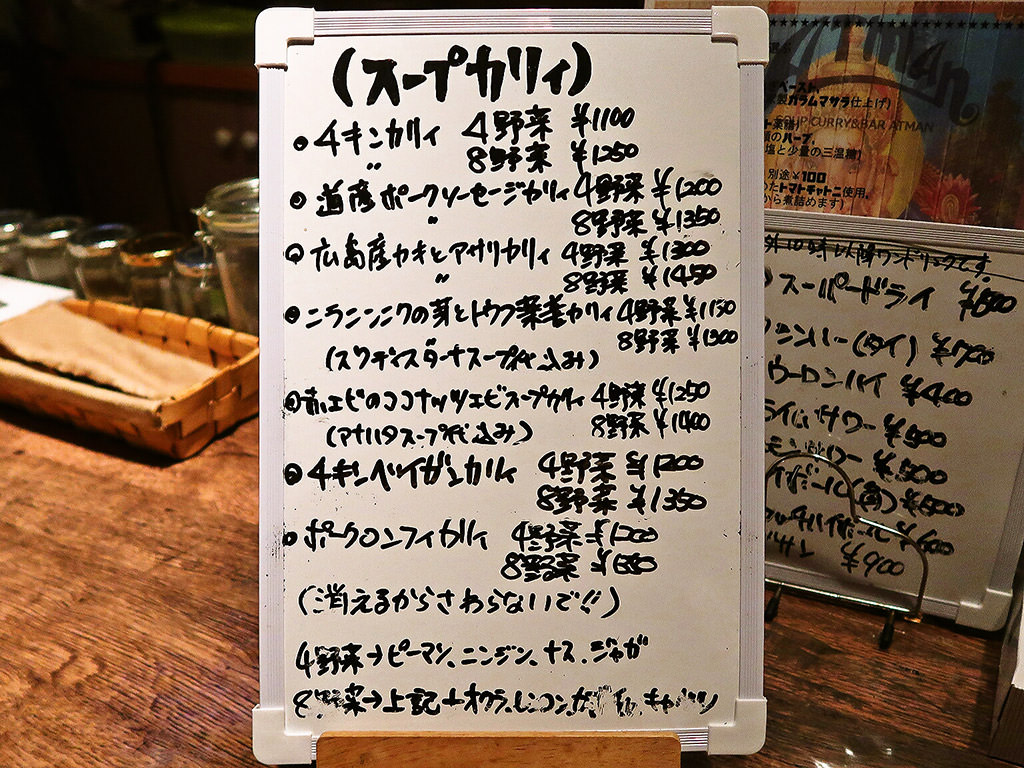 (スープカリィ)
・チキンカリィ 4野菜 ¥1100
〃 8野菜 ¥1250
・道産ポークソーセージカリィ 4野菜 ¥1200
〃 8野菜 ¥1350
・広島産カキとアサリカリィ 4野菜 ¥1300
〃 8野菜 ¥1450
・ニラニンニクの芽とトウフ薬善カリィ 4野菜 ¥1150
〃 8野菜 ¥1300
(スワディスターナスープ代込み)
・赤エビのココナッツエビスープカリィ 4野菜 ¥1250
(アナハタスープ代込み) 8野菜 ¥1400
・チキンベイガンカリィ 4野菜 ¥1200
8野菜 ¥1350
・ポークロンフィカリィ 4野菜 ¥1200
8野菜 ¥1350
(消えるからさわらないで!!)
4野菜→ピーマン、ニンジン、ナス、ジャガ
8野菜→上記+オクラ、レンコン、キャベツ
Atman
SOUP CURRY&BAR ATMAN
ペースト、
製ガラムマサラ仕上げ)
ト薬膳)
のハーブ、
塩と少量の三温糖)
別途¥100
トマトチャトニ使用。
から煮詰めます)
外10時以降ワンドリンクです。
スーパードライ ¥600
シンハー(タイ) ¥700
ウーロンハイ ¥400
ライムサワー ¥500
モンサワー ¥500
イボール(角) ¥500
¥900